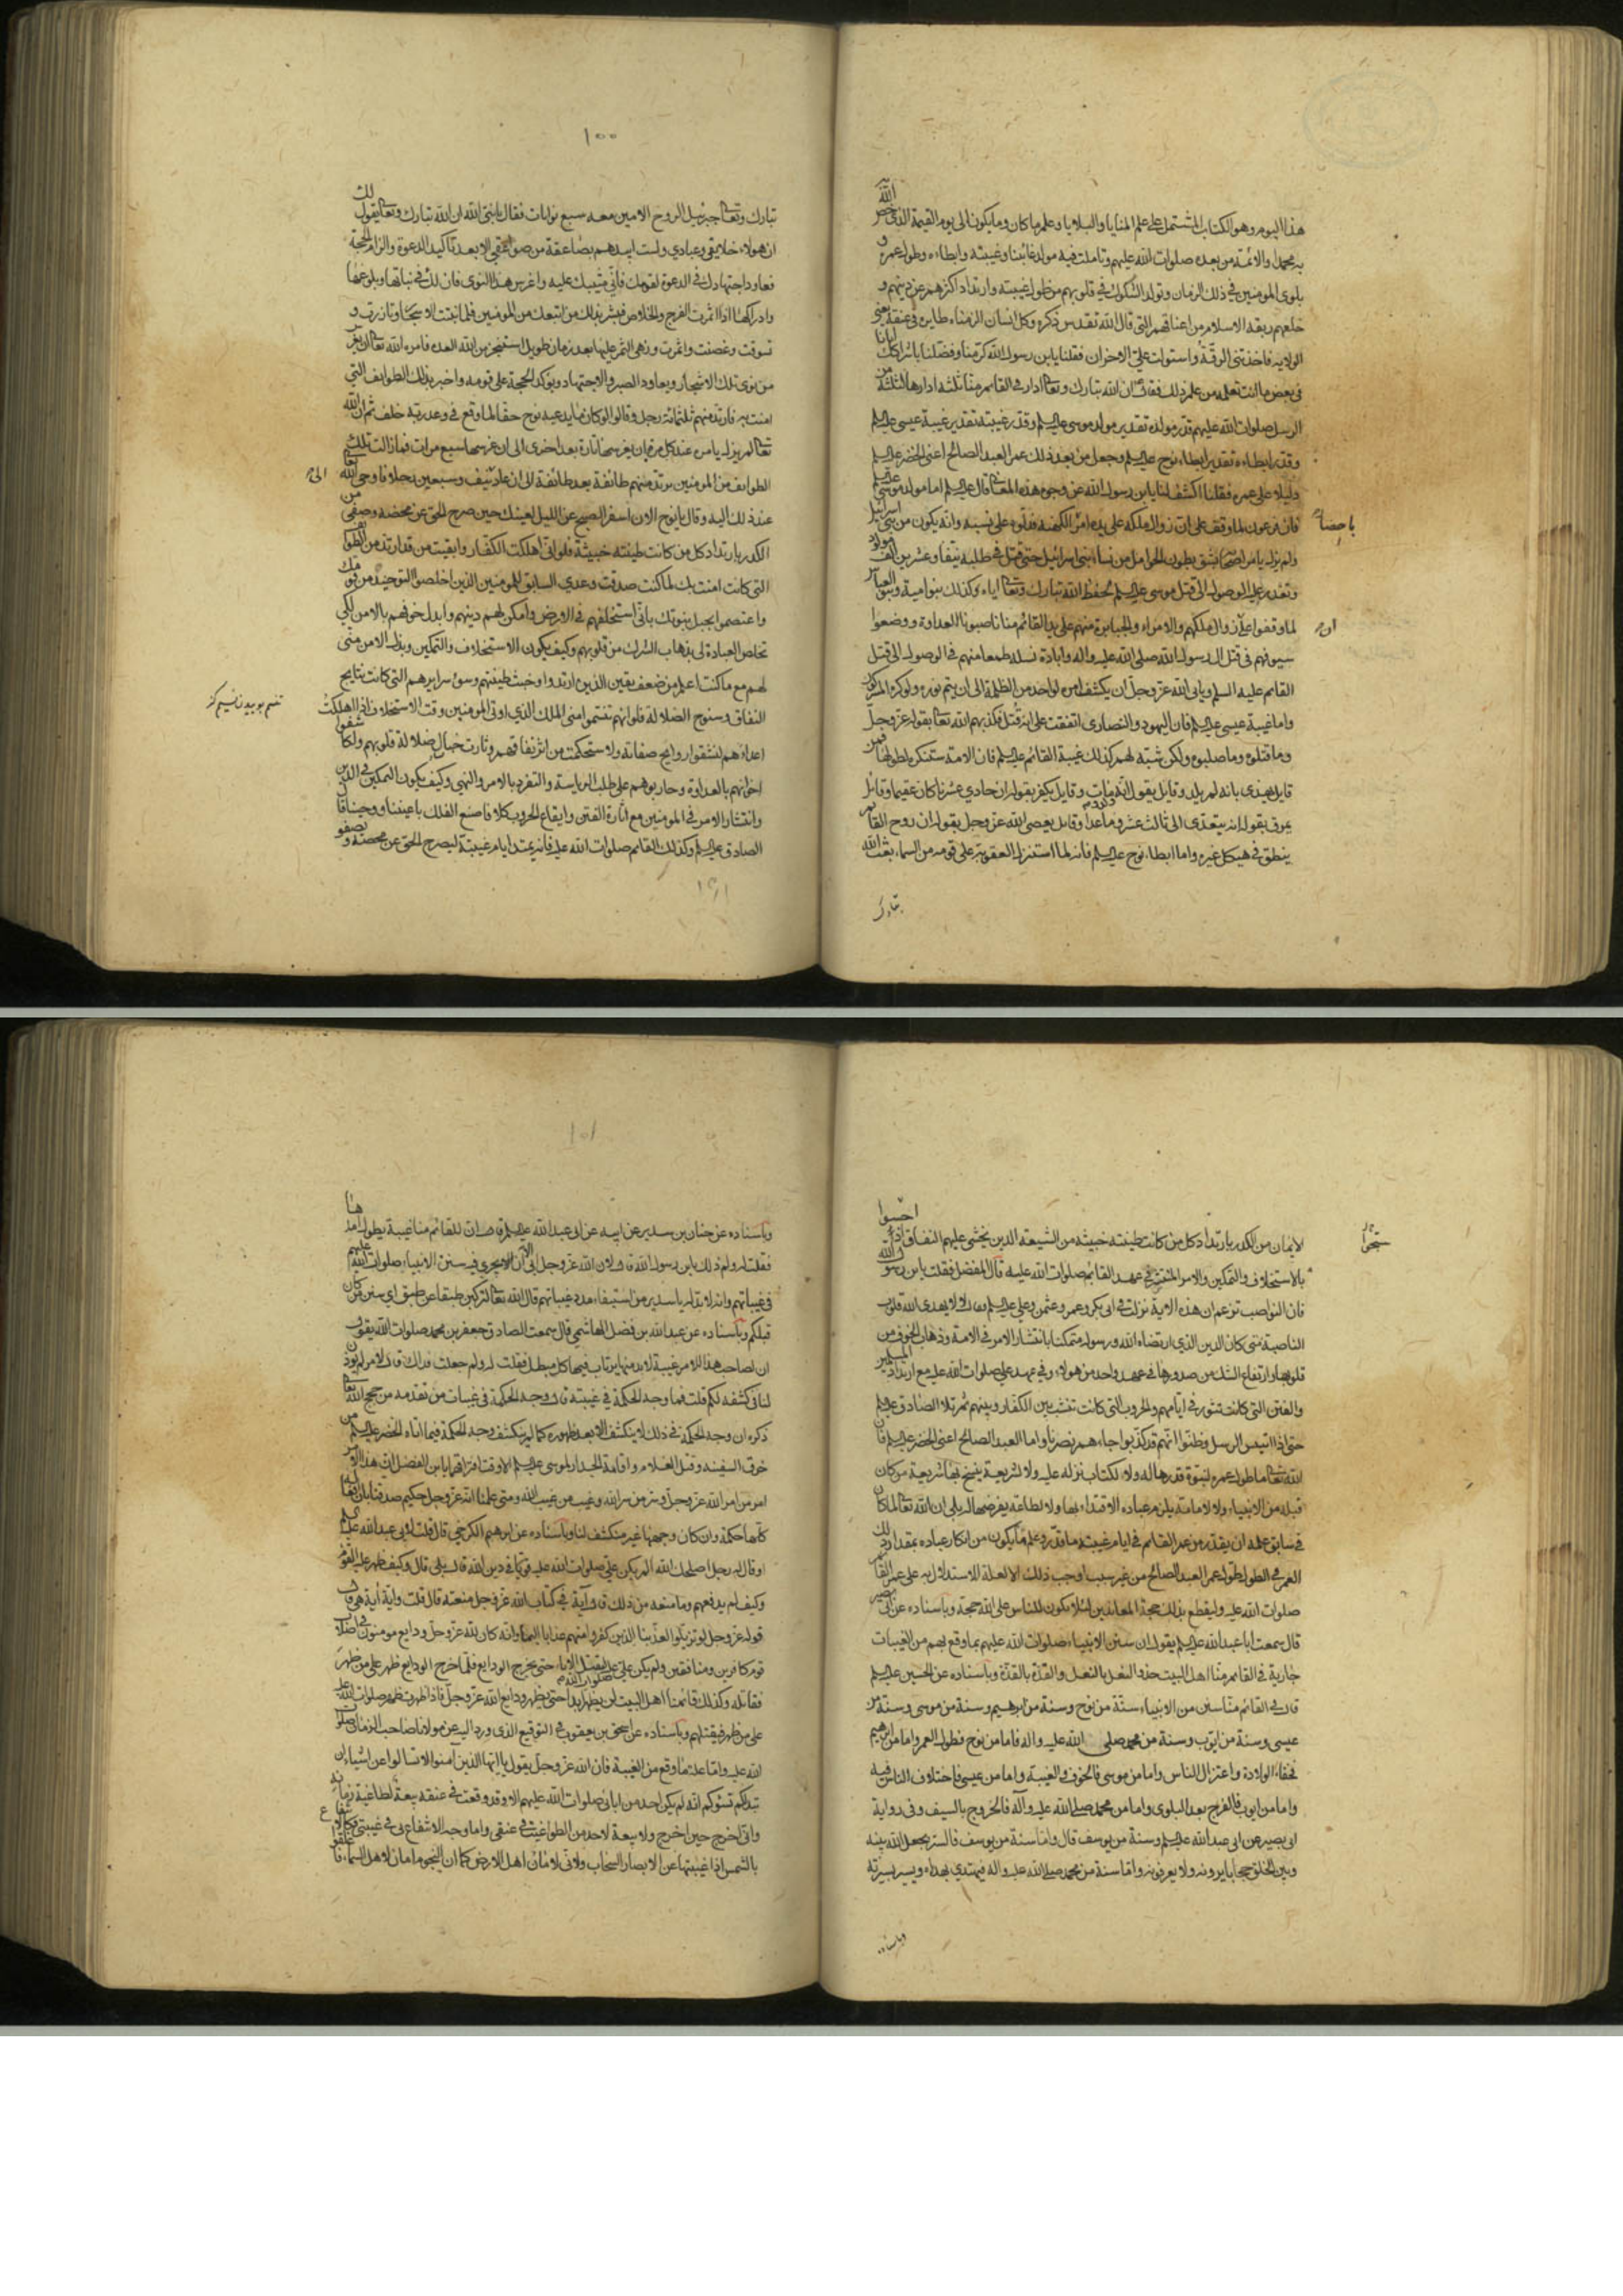 هذا اليوم وهو الكتاب المشتمل على علم المنايا والبلايا وعلم ما كان وما يكون الى يوم القيمة الذى خص الله
به محمدا والائمة من بعده صلوات الله عليهم وتاملت فيه مولد غائبنا وغيبته وابطاءه وطول عمره و
بلوى المومنين في ذلك الزمان وتولد الشكوك في قلوبهم من طول غيبته وارتداد اكثرهم عن دينهم و
خلعهم ربقة الاسلام من اعناقهم التى قال الله تقدس ذكره وكل انسان الزمناه طايره في عنقه يعنى
الولاية فاخذتنى الرقة واستولت علىّ الاحزان فقلنا يابن رسول الله كرّمنا وفضّلنا باشراكك ايانا
في بعض ما انت تعلمه من علم ذلك فقال ان الله تبارك وتعالى ادار في القائم منّا ثلثة ادارها لثلثة من
الرسل صلوات الله عليهم قدّر مولده تقدير مولد موسى عليه السلم وقدّر غيبته تقدير غيبة عيسى عليه السلم
وقدّر ابطاءه تقدير ابطاء نوح عليه السلم وجعل من بعد ذلك عمر العبد الصالح اعنى الخضر عليه السلم
دليلا على عمره فقلنا اكشف لنا يابن رسول الله عن وجوه هذه المعانى قال عليه السلم اما مولد موسى عليه السلم
فان فرعون لما وقف على ان زوال ملكه على يده امر الكهنة فدلّوه على نسبه وانه يكون من بنى اسرائيل
باحضار
ولم يزل يامر اصحابه بشق بطون الحوامل من نساء بنى اسرائيل حتى قتل في طلبه نيّفا وعشرين الف مولود
وتعذر عليه الوصول الى قتل موسى عليه السلم لحفظ الله تبارك وتعالى اياه وكذلك بنو امية وبنو العباس
لما وقفوا على زوال ملكهم والامراء والجبابرة منهم على يد القائم منا ناصبونا العداوة ووضعوا
ان
سيوفهم في قتل ال رسول الله صلى الله عليه واله وابادة نسله طمعا منهم في الوصول الى قتل
القائم عليه السلم ويابى الله عز وجلّ ان يكشف امره لواحد من الظلمة الى ان يتم نوره ولو كره المشركون
واما غيبة عيسى عليه السلم فان اليهود والنصارى اتفقت على انه قُتل فكذبهم الله تعالى بقوله عز وجلّ
وما قتلوه وما صلبوه ولكن شبّه لهم كذلك غيبة القائم عليه السلم فان الامة ستنكره لطولها فمن
قايل يهذى بانه لم يلد وقايل يقول انّه مات وقايل يكفر بقوله ان حادي عشرنا كان عقيما وقائل
يمرق بقوله انه يتعدّى الى ثالث عشر وما عدا وقائل يعصى الله عز وجل بقوله ان روح القائم
ينطق في هيكل غيره واما ابطاء نوح عليه السلم فانه لما استنزل العقوبة على قومه من السماء بعث الله
تبارك
١٠٠
تبارك وتعالى جبرئيل الروح الامين معه سبع نوايات فقال يا نبى الله ان الله تبارك وتعالى يقول لك
ان هؤلاء خلايقي وعبادي ولست ابيدهم بصاعقة من صواعقي الا بعد تاكيد الدعوة والزام الحجة
فعاود اجتهادك في الدعوة لقومك فأنّي مثيبك عليه واغرس هذا النوى فان لك في نباتها وبلوغها
وادراكها اذا اثمرت الفرج والخلاص فبشر بذلك من اتبعك من المومنين فلما نبتت الاشجار وتازرت و
تسوقت وغصنت واثمرت وزهى الثمر عليها بعد زمان طويل استنجز من الله العدة فامره الله تعالى ان يغرس
من نوى تلك الاشجار ويعاود الصبر والاجتهاد ويؤكد الحجة على قومه واخبر بذلك الطوايف التي
امنت به فارتد منهم ثلثمائة رجل وقالوا لو كان ما يدعيه نوح حقا لما وقع في وعد ربّه خلف ثم ان الله
تعالى لم يزل يامره عند كل مرة بان يغرسها تارة بعد اخرى الى ان غرسها سبع مرات فما زالت تلك
الطوايف من المومنين يرتد منهم طائفة بعد طائفة الى ان عاد نيّف وسبعين رجلا فاوحى الله تعالى
الى
عند ذلك اليه وقال يا نوح الان اسفر الصبح عن الليل لعينك حين صرح الحق عن محضه وصفى من
الكدر بارتداد كل من كانت طينته خبيثة فلو انّي اهلكت الكفّار وابقيت من قد ارتد من الطوايف
التى كانت امنت بك لما كنت صدقت وعدي السابق للمومنين الذين اخلصوا التوحيد من قومك
واعتصموا بحبل نبوتك بانّي استخلفهم في الارض وامكن لهم دينهم وابدل خوفهم بالامن لكي
تخلص العبادة لى بذهاب الشرك من قلوبهم وكيف يكون الاستخلاف والتمكين وبذل الامن منّي
لهم مع ما كنت اعلم من ضعف يقين الذين ارتدوا وخبث طينتهم وسوء سرايرهم التى كانت نتايج
النفاق وسنوح الضلالة فلو انهم تنسّموا منى الملك الذي اوتى المومنين وقت الاستخلاف اذا اهلكت
اعداءهم لنشقوا روايح صفاته ولاستحكمت من اثر نفاقهم وثارت خبال ضلالة قلوبهم ولكاشفوا
اخوانهم بالعداوة وحاربوهم على طلب الرياسة والتفرد بالامر والنهي وكيف يكون التمكين في الدين
وانتشار الامر في المومنين مع اثارة الفتن وايقاع الحروب كلا فاصنع الفلك باعيننا ووحينا قال
الصادق عليه السلم وكذلك القائم صلوات الله عليه فانه يمتد ايام غيبته ليصرح الحق عن محضه ويصفو
الايمان من الكدر بارتداد كل من كانت طينته خبيثه من الشيعة الذين يخشى عليهم النفاق اذا احسوا
بالاستخلاف والتمكين والامر المنتشر في عهد القائم صلوات الله عليه قال المفضل فقلت يابن رسول الله
فان النواصب تزعم ان هذه الاية نزلت في ابى بكر وعمر وعثمن وعلي عليه السلم فقال لا لا يهدى الله قلوب
الناصبة متى كان الدين الذي ارتضاه الله ورسوله متمكنا بانتشار الامر في الامة وذهاب الخوف من
قلوبها وارتفاع الشك من صدورها في عهد واحد من هؤلاء وفي عهد علي صلوات الله عليه مع ارتداد المسلمين
والفتن التى كانت تثور في ايامهم والحروب التى كانت تنشب بين الكفّار وبينهم ثم تلا الصّادق عليه السلم
حتى اذا استيئس الرسل وظنّوا انّهم قد كذبوا جاءهم نصرنا واما العبد الصالح اعنى الخضر عليه السلم فان
الله تعالى ما طول عمره لنبوّة قدرها له ولا لكتاب نزله عليه ولا لشريعة ينسخ بها شريعة من كان
قبله من الانبياء ولا لامامة يلزم عباده الاقتداء بها ولا لطاعة يفرضها له بلى ان الله تعالى لما كان
في سابق علمه ان يقدّر من عمر القائم في ايام غيبته ما قدّر وعلم ما يكون من انكار عباده بمقدار ذلك
العمر في الطول طول عمر العبد الصالح من غير سبب اوجب ذلك الا لعلة الاستدلال به على عمر القائم
صلوات الله عليه وليقطع بذلك حجة المعاندين لئلا يكون للناس على الله حجة وباسناده عن ابى بصير
قال سمعت ابا عبد الله عليه السلم يقول ان سنن الانبياء صلوات الله عليهم بما وقع بهم من الغيبات
جارية في القائم منّا اهل البيت حذو النعل بالنعل والقذّة بالقذّة وباسناده عن الحسين عليه السلم
قال في القائم منّا سنن من الانبياء سنّة من نوح وسنة من ابرهيم وسنة من موسى وسنة من
عيسى وسنة من ايّوب وسنة من محمد صلى الله عليه واله فاما من نوح فطول العمر واما من ابرهيم
فخفاء الولادة واعتزال الناس واما من موسى فالخوف والغيبة واما من عيسى فاختلاف الناس فيه
واما من ايوب فالفرج بعد البلوى واما من محمد صلى الله عليه وآله فالخروج بالسيف وفى رواية
ابى بصير عن ابى عبد الله عليه السلم وسنة من يوسف قال واما سنة من يوسف فالستر يجعل الله بينه
وبين الخلق حجابا يرونه ولا يعرفونه واما سنة من محمد صلى الله عليه واله فيهتدي بهداه ويسير بسيرته
وباسناده
١٠١
وباسناده عن حنان بن سدير عن ابيه عن ابى عبد الله عليه السلم قال ان للقائم منا غيبة يطول امدها
فقلت له ولم ذلك يابن رسول الله قال لان الله عز وجل ابى الا ان يجرى فيه سنن الانبياء صلوات الله عليهم
في غيباتهم وانه لا بد له يا سدير من استيفاء مدد غيباتهم قال الله تعالى لتركبن طبقا عن طبق اى سنن من كان
قبلكم وباسناده عن عبد الله بن فضل الهاشمي قال سمعت الصادق جعفر بن محمد صلوات الله يقول
ان لصاحب هذا الامر غيبة لا بد منها يرتاب فيها كل مبطل فقلت له ولم جعلت فداك قال لامر لم يوذن
لنا في كشفه لكم قلت فما وجه الحكمة في غيبته قال وجه الحكمة في غيبات من تقدمه من حجج الله تعالى
ذكره ان وجه الحكمة في ذلك لا ينكشف الا بعد ظهوره كما لم ينكشف وجه الحكمة فيما اتاه الخضر عليه السلم من
خرق السفينة وقتل الغلام واقامة الجدار لموسى عليه السلم الا وقت افتراقهما يابن الفضل ان هذا الامر
امر من امر الله عز وجل وسر من سر الله وغيب من غيب الله ومتى علمنا انه عز وجل حكيم صدقنا بان افعاله
كلّها حكمة وان كان وجهها غير منكشف لنا وباسناده عن ابرهيم الكرخي قال قلت لابى عبد الله عليه السلم
او قال له رجل اصلحك الله الم يكن علي صلوات الله عليه قويّا في دين الله قال بلى قال وكيف ظهر عليه القوم
وكيف لم يدفعهم وما منعه من ذلك قال آية في كتاب الله عز وجل منعته قال قلت واية آية هى قال
قوله عز وجل لو تزيّلوا لعذّبنا الذين كفروا منهم عذابا اليما وانه كان لله عز وجل ودايع مومنون في اصلاب
قوم كافرين ومنافقين ولم يكن علي صلوات الله عليه ليقتل الاباء حتى يخرج الودايع فلما خرج الودايع ظهر على من ظهر
فقاتله وكذلك قائمنا اهل البيت لن يظهر ابدا حتى يظهر ودايع الله عز وجلّ فاذا ظهرت ظهر صلوات الله عليه
على من ظهر فيقتلهم وباسناده عن اسحق بن يعقوب في التوقيع الذى ورد اليه عن مولانا صاحب الزمان صلوات
الله عليه واما علة ما وقع من الغيبة فان الله عز وجل يقول يا ايها الذين امنوا لا تسالوا عن اشياء ان
تبد لكم تسؤكم انّه لم يكن احد من ابائى صلوات الله عليهم الا وقد وقعت في عنقه بيعة لطاغية زمانه
وانّي اخرج حين اخرج ولا بيعة لاحد من الطواغيت في عنقى واما وجه الانتفاع بى في غيبتى فكالانتفاع
بالشمس اذا غيّبتها عن الابصار السحاب وانّى لامان اهل الارض كما ان النجوم امان لاهل السماء